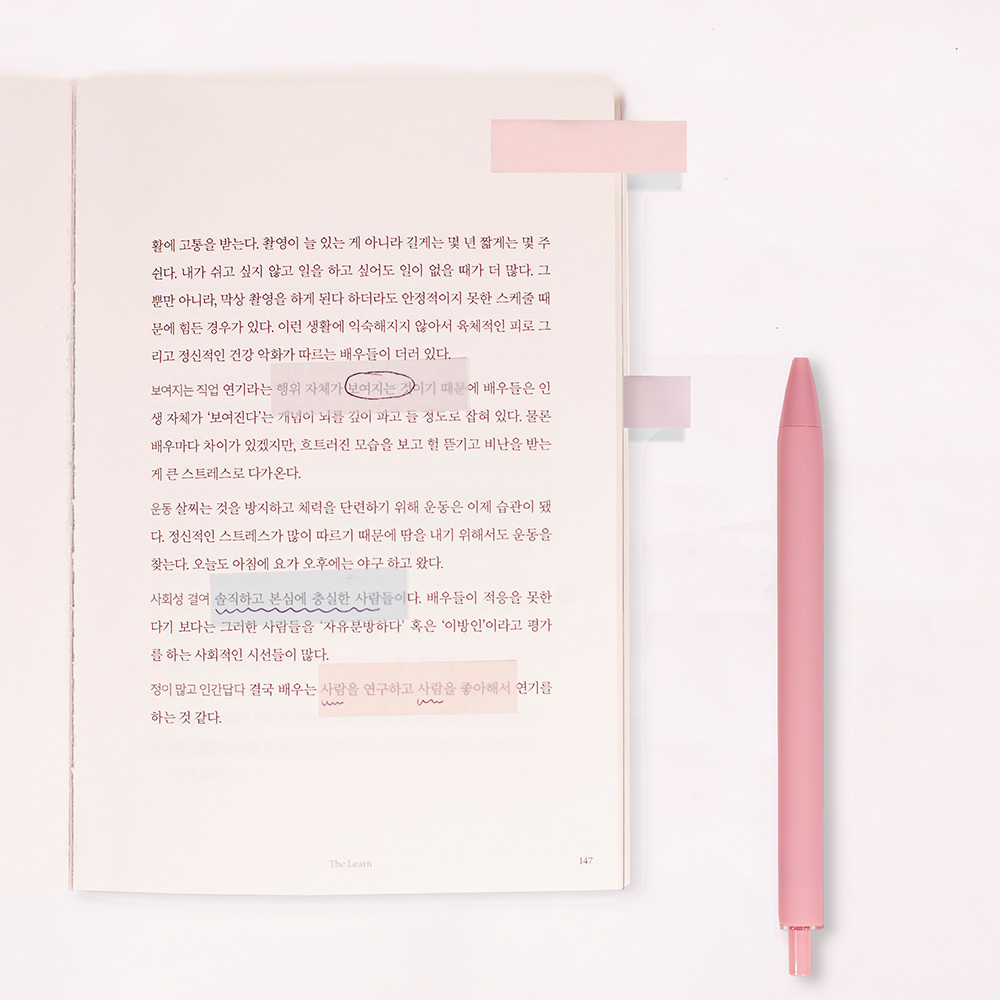 활에 고통을 받는다. 촬영이 늘 있는 게 아니라 길게는 몇 년 짧게는 몇 주
쉰다. 내가 쉬고 싶지 않고 일을 하고 싶어도 일이 없을 때가 더 많다. 그
뿐만 아니라, 막상 촬영을 하게 된다 하더라도 안정적이지 못한 스케줄 때
문에 힘든 경우가 있다. 이런 생활에 익숙해지지 않아서 육체적인 피로 그
리고 정신적인 건강 악화가 따르는 배우들이 더러 있다.
보여지는 직업 연기라는 행위 자체가 보여지는 것이기 때문에 배우들은 인
생 자체가 ‘보여진다’는 개념이 뇌를 깊이 파고 들 정도로 잡혀 있다. 물론
배우마다 차이가 있겠지만, 흐트러진 모습을 보고 헐 뜯기고 비난을 받는
게 큰 스트레스로 다가온다.
운동 살찌는 것을 방지하고 체력을 단련하기 위해 운동은 이제 습관이 됐
다. 정신적인 스트레스가 많이 따르기 때문에 땀을 내기 위해서도 운동을
찾는다. 오늘도 아침에 요가 오후에는 야구 하고 왔다.
사회성 결여 솔직하고 본심에 충실한 사람들이다. 배우들이 적응을 못한
다기 보다는 그러한 사람들을 ‘자유분방하다’ 혹은 ‘이방인’이라고 평가
를 하는 사회적인 시선들이 많다.
정이 많고 인간답다 결국 배우는 사람을 연구하고 사람을 좋아해서 연기를
하는 것 같다.
The Learn
147